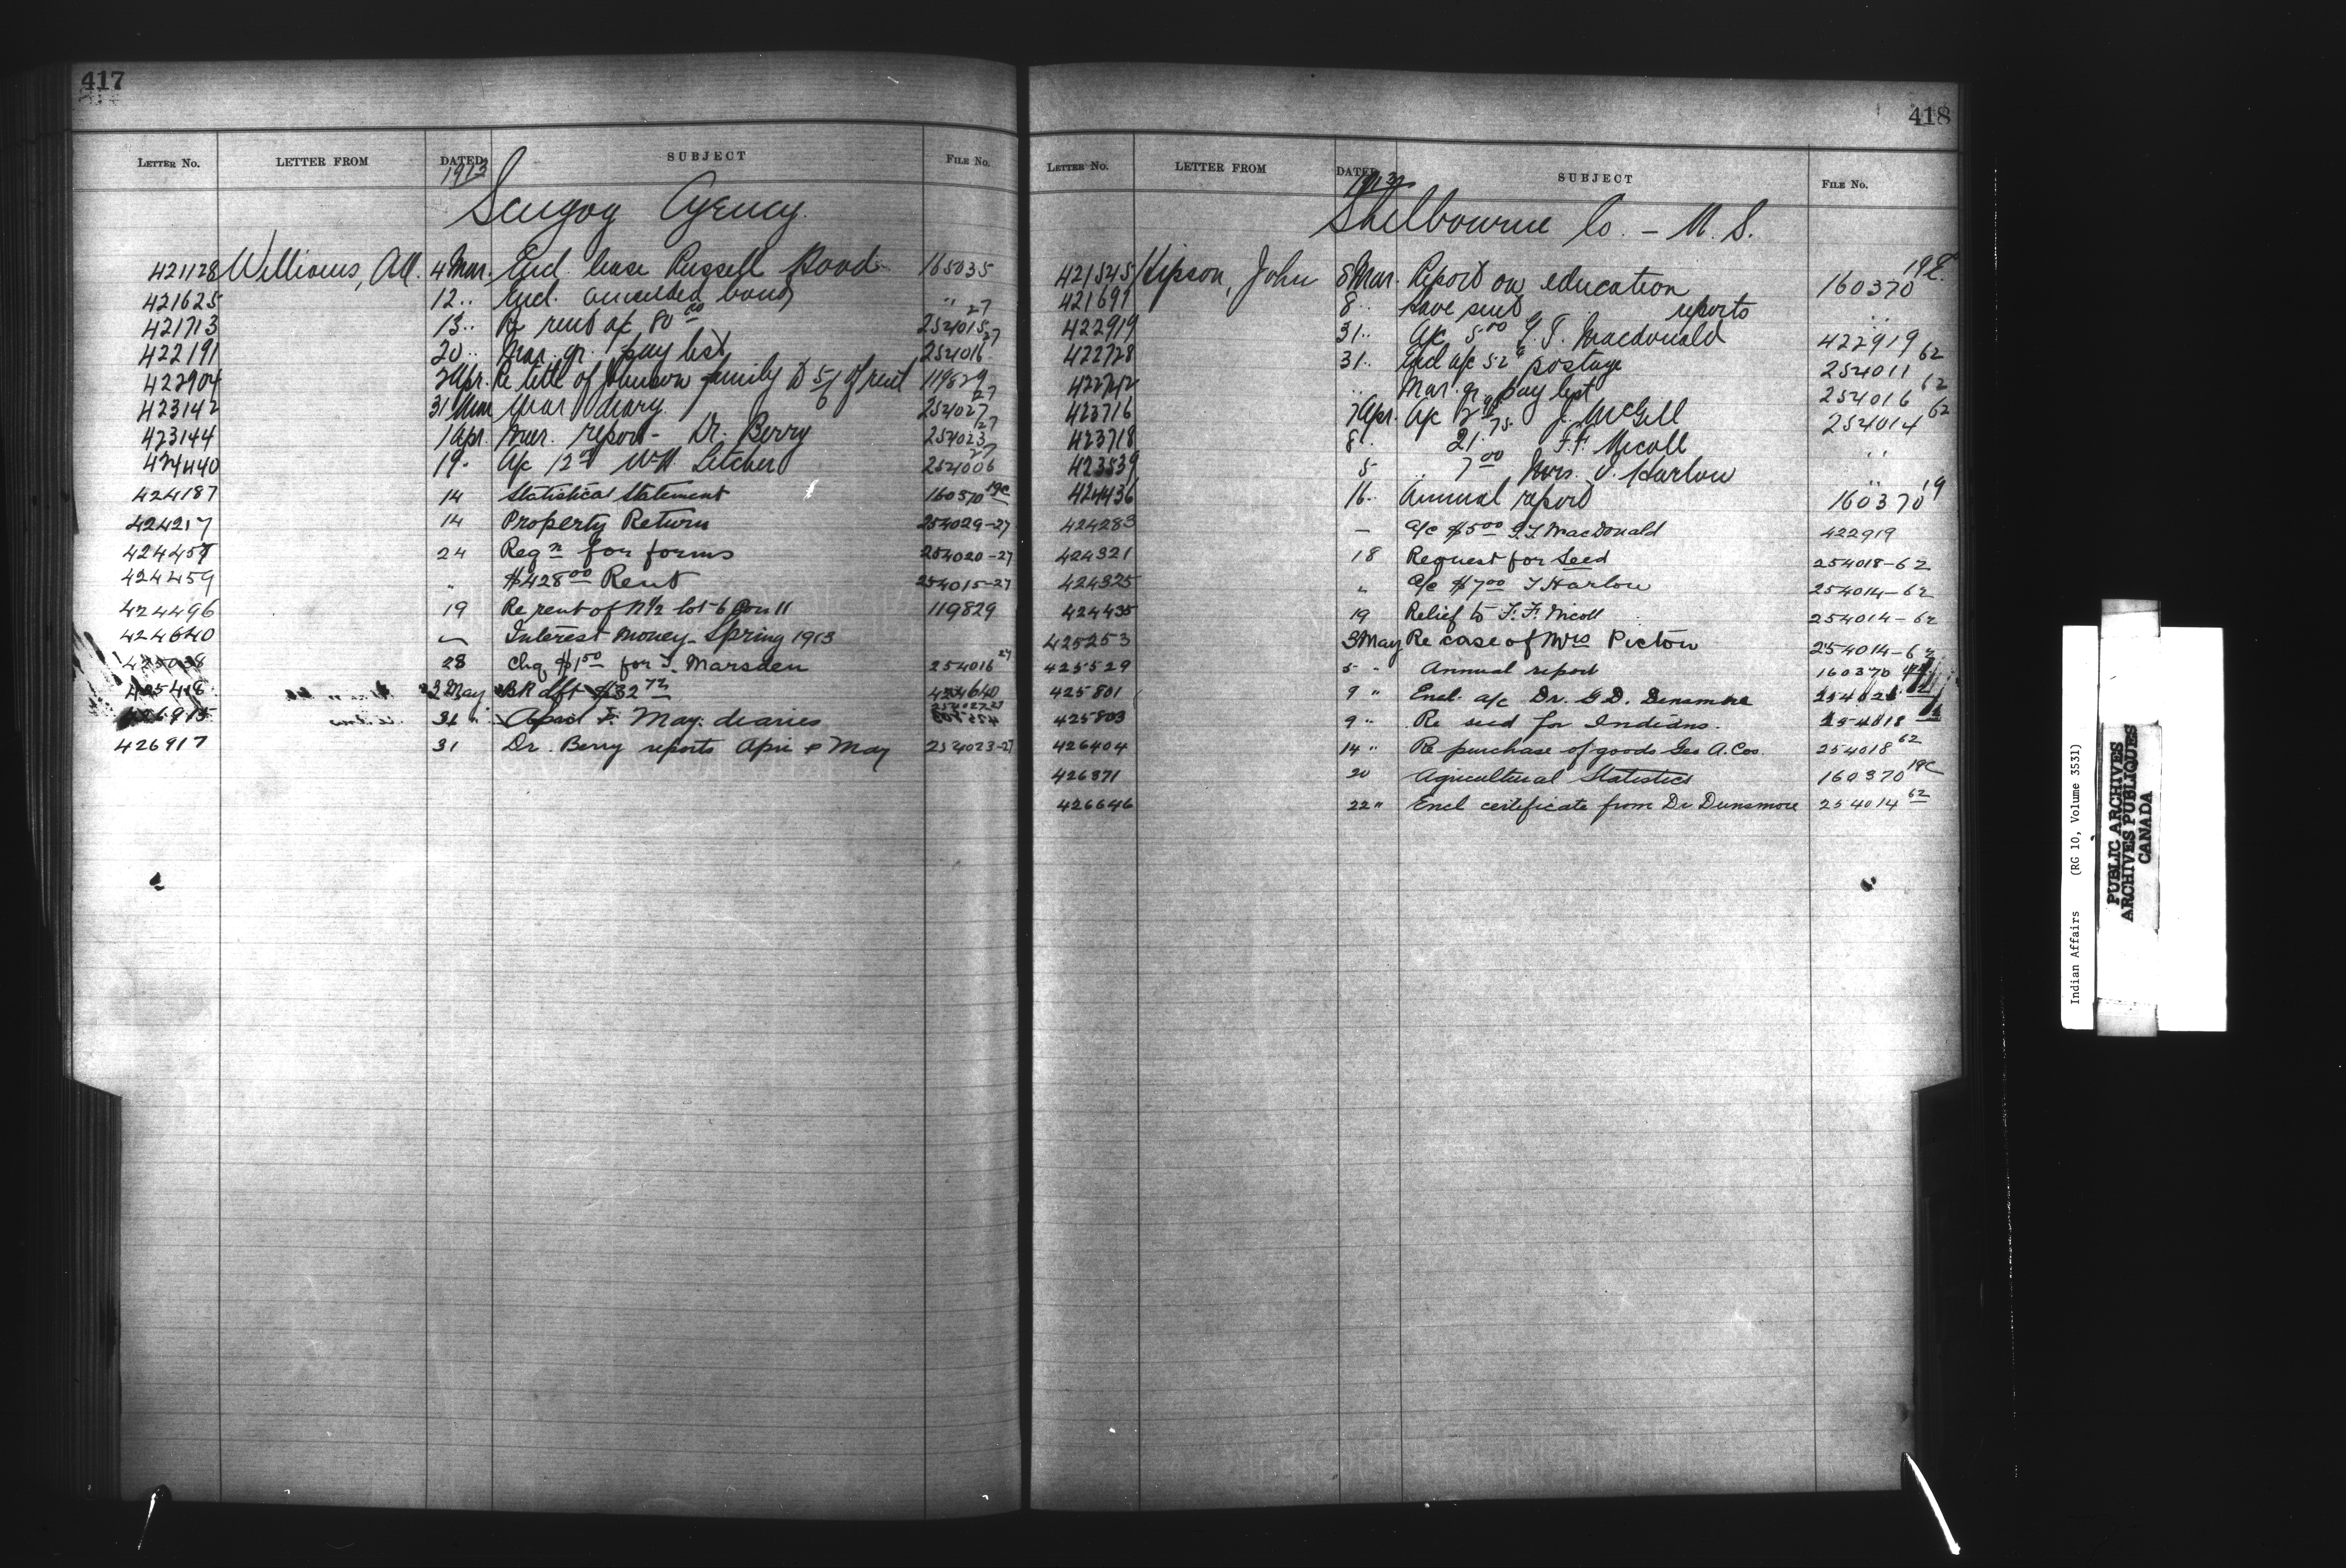 417
LETTER No. LETTER FROM DATED SUBJECT FILE No.
1913
Scugog Agency.
421128 Williams, A.W. 4 Mar. Encl. lease Russell Hood 165035
421625 12 .. Encl. cancelled bond "
421713 13 .. Re rent of 80 00 254015 27
422191 20 .. Mar. qr. pay list 254016 27
422904 2 Apr. Re title of Johnson family to 5/6 of rent 119829
423142 31 Mar Mar diary. 254027 27
423144 1 Apr. Mar. report - Dr. Berry 254023 27
424440 19. A/c 12 00 W.H. Letcher 254006 27
424187 14 Statistical Statement 160370 19C
424217 14 Property Return 254029-27
424457 24 Reqn for forms 254020-27
424459 " $428 00 Rent 254015-27
424496 19 Re rent of N 1/2 lot 6 Con 11 119829
424640 Interest Money - Spring 1913
425038 28 chq $1 50 for T. Marsden 254016 27
425418 3 May BR dft $32 72 424640
426915 31 " April & May. diaries 254027 27
426917 31 Dr. Berry reports Apri & May 254023-27
418
LETTER No. LETTER FROM DATED SUBJECT FILE No.
1913
Shelbourne Co. - N.S.
421545 Hipson, John 8 Mar. Report on education 160370 19E
421691 8 .. have sent reports ..
422919 31 .. A/c 5 00 G.T. Macdonald 422919
422728 31 .. Encl a/c 52 c postage 254011 62
.. Mar. qr. pay list 254016 62
423716 7 Apr. A/c J. McGill 254014 62
423718 8 . 21. 75 F.F. Nicoll ..
423539 5 .. 7 00 Mrs. J. Harlow ..
424436 16 .. Annual report 160370 19
424283 — a/c $5 00 G.T. MacDonald 422919
424321 18 Request for Seed 254018-62
424325 " a/c $7 00 T Harlow 254014-62
424435 19 Relief to F.F. Nicoll 254014-62
425253 3 May Re case of Mrs Picton 254014-62
425529 5 " Annual report 160370
425801 9 " Encl. a/c Dr. G.D. Densmore
425803 9 " Re seed for Indians. 254018 62
426404 14 " Re purchase of goods Geo A. Cox 254018 62
426371 20 Agricultural Statistics 160370 19C
426646 22 " Encl certificate from Dr Dunsmore 254014 62
Indian Affairs (RG 10, Volume 3531)
PUBLIC ARCHIVES
ARCHIVES PUBLIQUES
CANADA